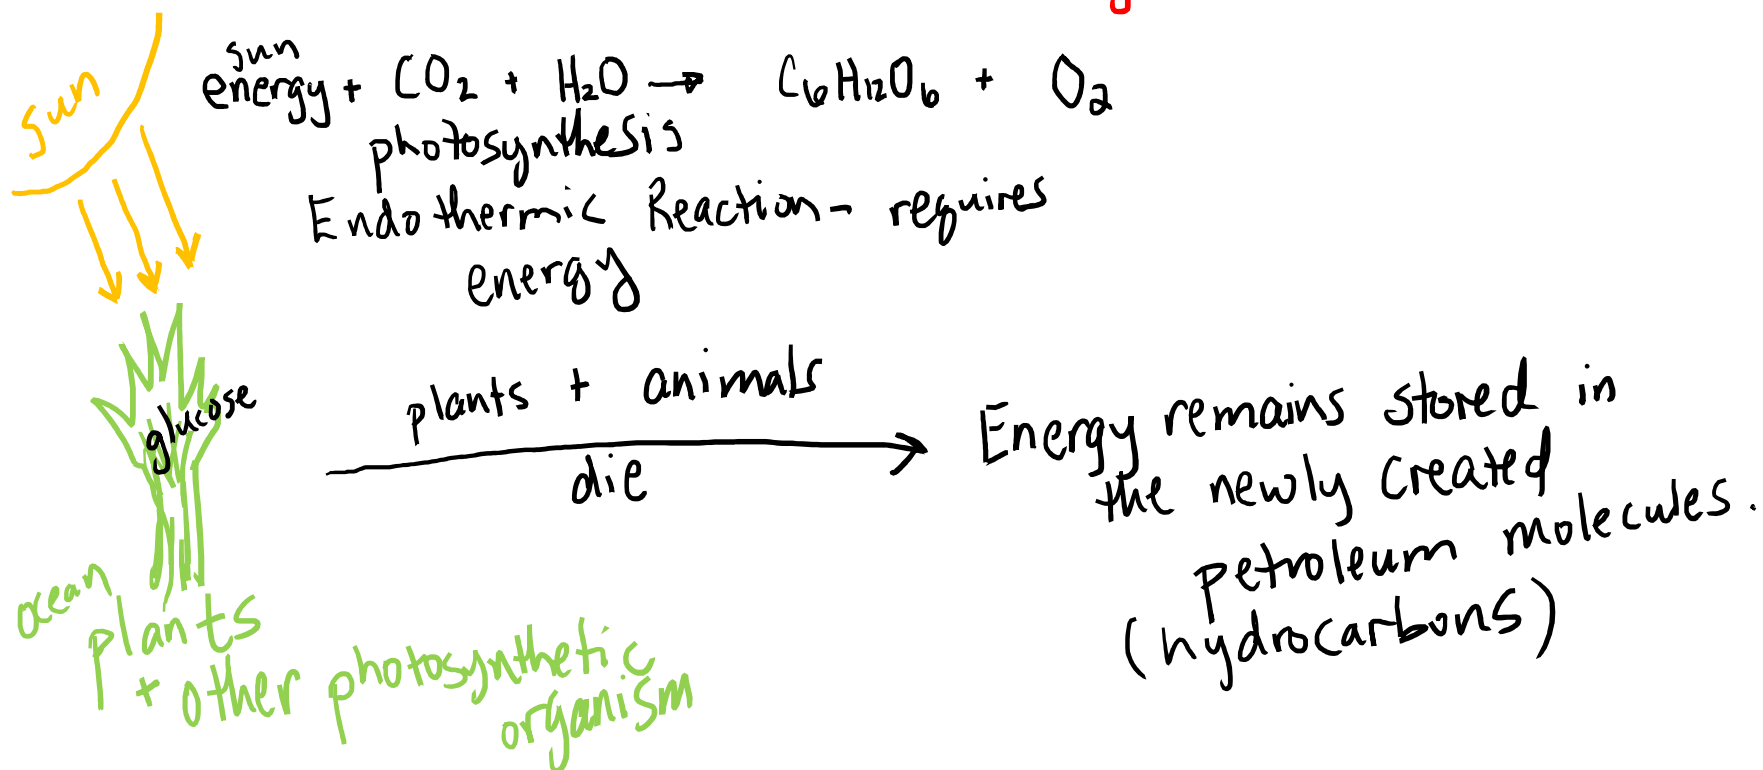 sun
sun
energy + CO₂ + H₂O → C₆H₁₂O₆ + O₂
photosynthesis
Endothermic Reaction - requires
energy
glucose
plants + animals
die
Energy remains stored in
the newly created
petroleum molecules.
(hydrocarbons)
ocean
plants
+ other photosynthetic
organism